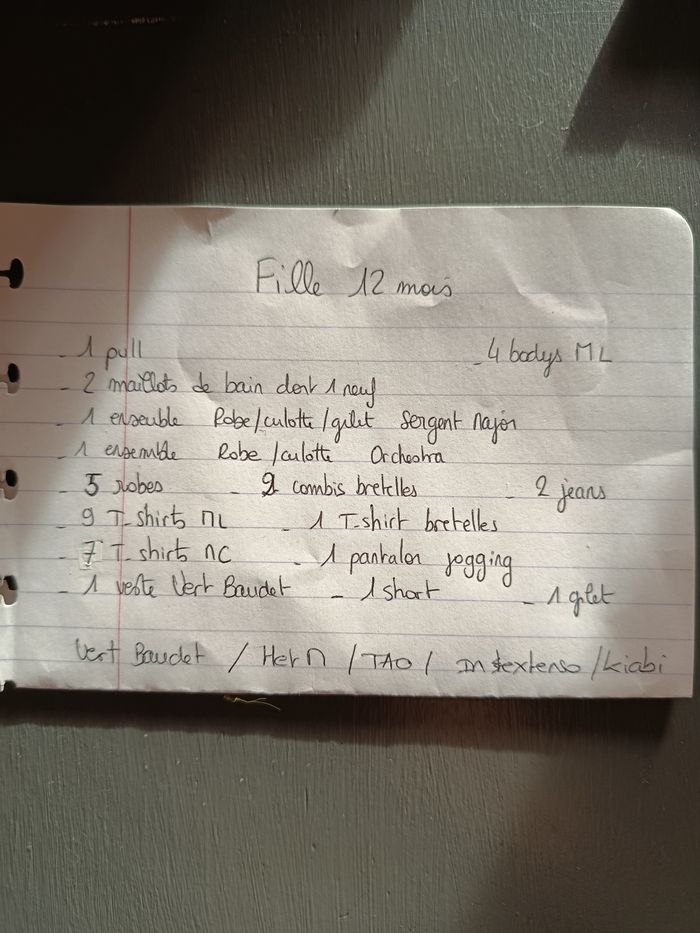 Fille 12 mois
- 1 pull - 4 bodys ML
- 2 maillots de bain dont 1 neuf
- 1 ensemble Robe/culotte/gilet Sergent Major
- 1 ensemble Robe/culotte Orchestra
- 5 robes - 2 combis bretelles - 2 jeans
- 9 T-shirts ML - 1 T-shirt bretelles
- 7 T-shirts MC - 1 pantalon jogging
- 1 veste Vert Baudet - 1 short - 1 gilet
Vert Baudet / H et M / TAO / In extenso / kiabi